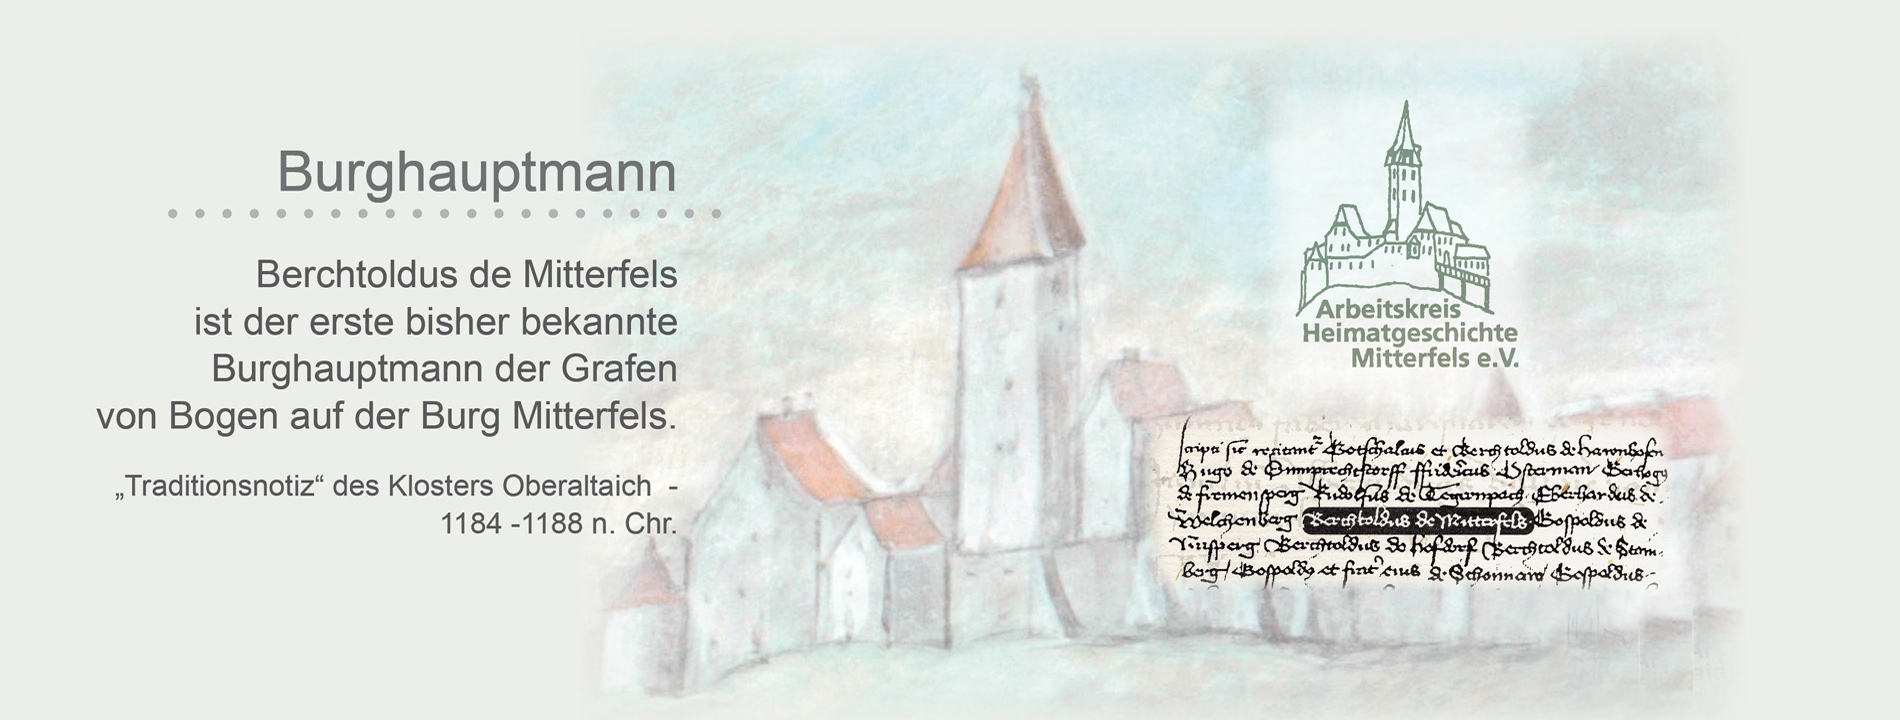 Burghauptmann
Berchtoldus de Mitterfels
ist der erste bisher bekannte
Burghauptmann der Grafen
von Bogen auf der Burg Mitterfels.
„Traditionsnotiz“ des Klosters Oberaltaich -
1184 -1188 n. Chr.
Arbeitskreis
Heimatgeschichte
Mitterfels e.V.
et Berchtoldus de
Hugo de
de Rudolfus de Eberhardus de
Welchenberg Berchtoldus de Mitterfels Gospoldus de
Berchtoldus de hofdorf Berchtoldus de Stam-
berg et eius de Gospoldus